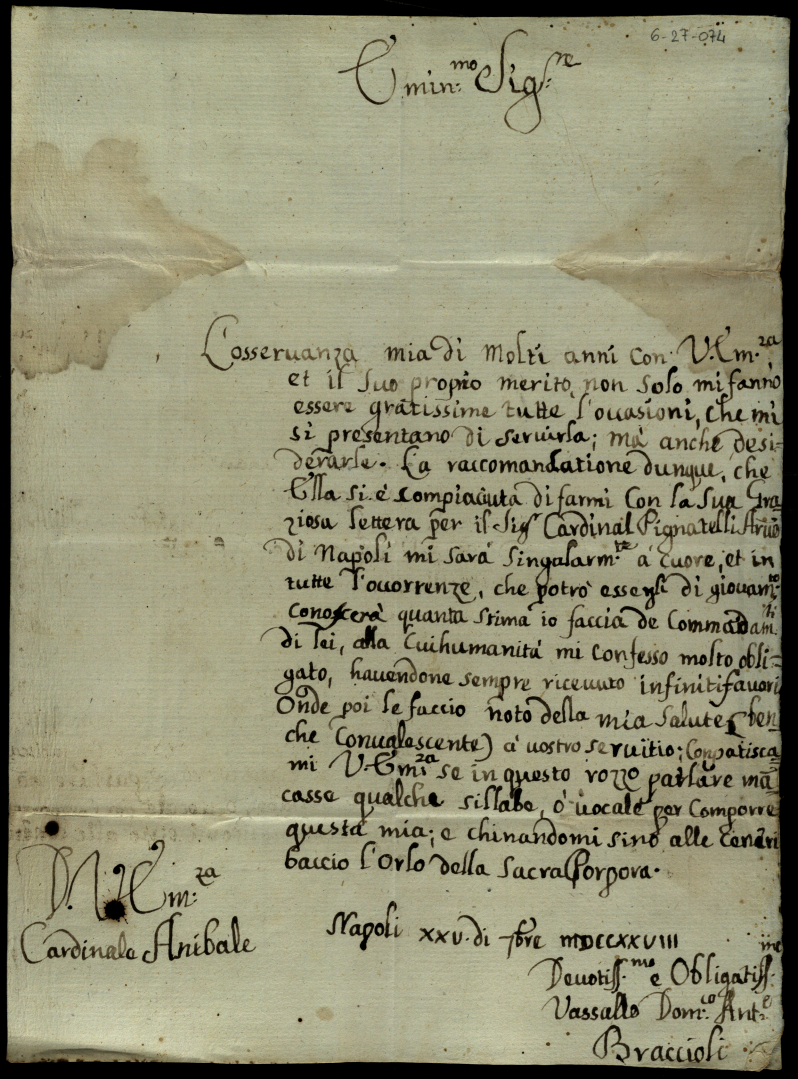 6-27-074
Emin:mo Sig:re
L'osseruanza mia di Molti anni con V. Em:za
et il suo proprio merito, non solo mi fanno
essere gratissime tutte l'ouasioni, che mi
si presentano di seruirla; ma anche desi=
derarle. La raccomandatione dunque, che
Ella si è compiaciuta di farmi con la sua Gra=
ziosa lettera per il Sig.r Cardinal Pignatelli Ariuo
di Napoli mi sarà singalarm:te à cuore, et in
tutte l'ouorrenze, che potrò essergli di giouam:to
conoscerà quanta stima io faccia de Commadam:ti
di lei, alla Cui humanità mi confesso molto obli=
gato, hauendone sempre riceuuto infiniti fauori
Onde poi le faccio noto della mia salute (ben
che Conualescente) à uostro seruitio; Conpatisca
mi V. Emi:za se in questo rozzo parlare mã
casse qualche sillabe, ò uocale per Comporre
questa mia; e chinandomi sino alle Ceneri
baccio l'Orlo della Sacra Porpora.
D. V. Em:za
Cardinale Anibale
Napoli XXV. di 7bre MDCCXXVIII
Deuotiss:mo e Obligatiss:me
Vassallo Dom:co Ant:e
Braccioli